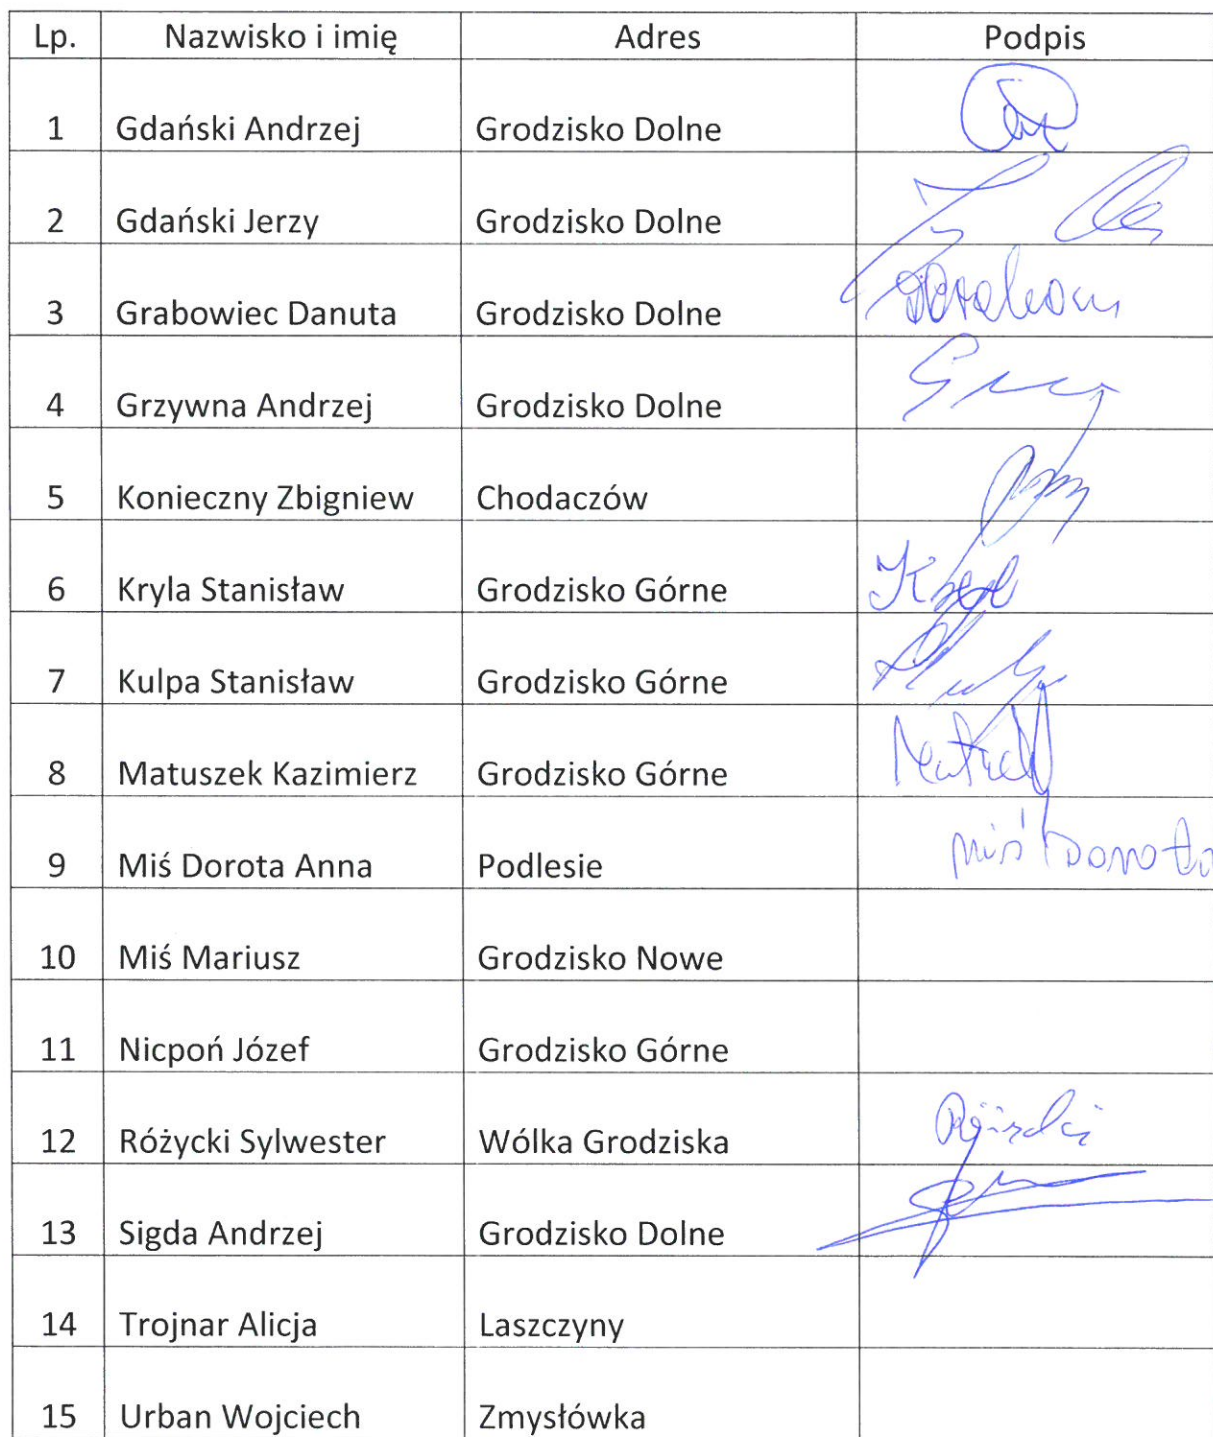 Lp. Nazwisko i imię Adres Podpis
1 Gdański Andrzej Grodzisko Dolne
2 Gdański Jerzy Grodzisko Dolne
3 Grabowiec Danuta Grodzisko Dolne
4 Grzywna Andrzej Grodzisko Dolne
5 Konieczny Zbigniew Chodaczów
6 Kryla Stanisław Grodzisko Górne
7 Kulpa Stanisław Grodzisko Górne
8 Matuszek Kazimierz Grodzisko Górne
9 Miś Dorota Anna Podlesie Miś Dorota
10 Miś Mariusz Grodzisko Nowe
11 Nicpoń Józef Grodzisko Górne
12 Różycki Sylwester Wólka Grodziska
13 Sigda Andrzej Grodzisko Dolne
14 Trojnar Alicja Laszczyny
15 Urban Wojciech Zmysłówka